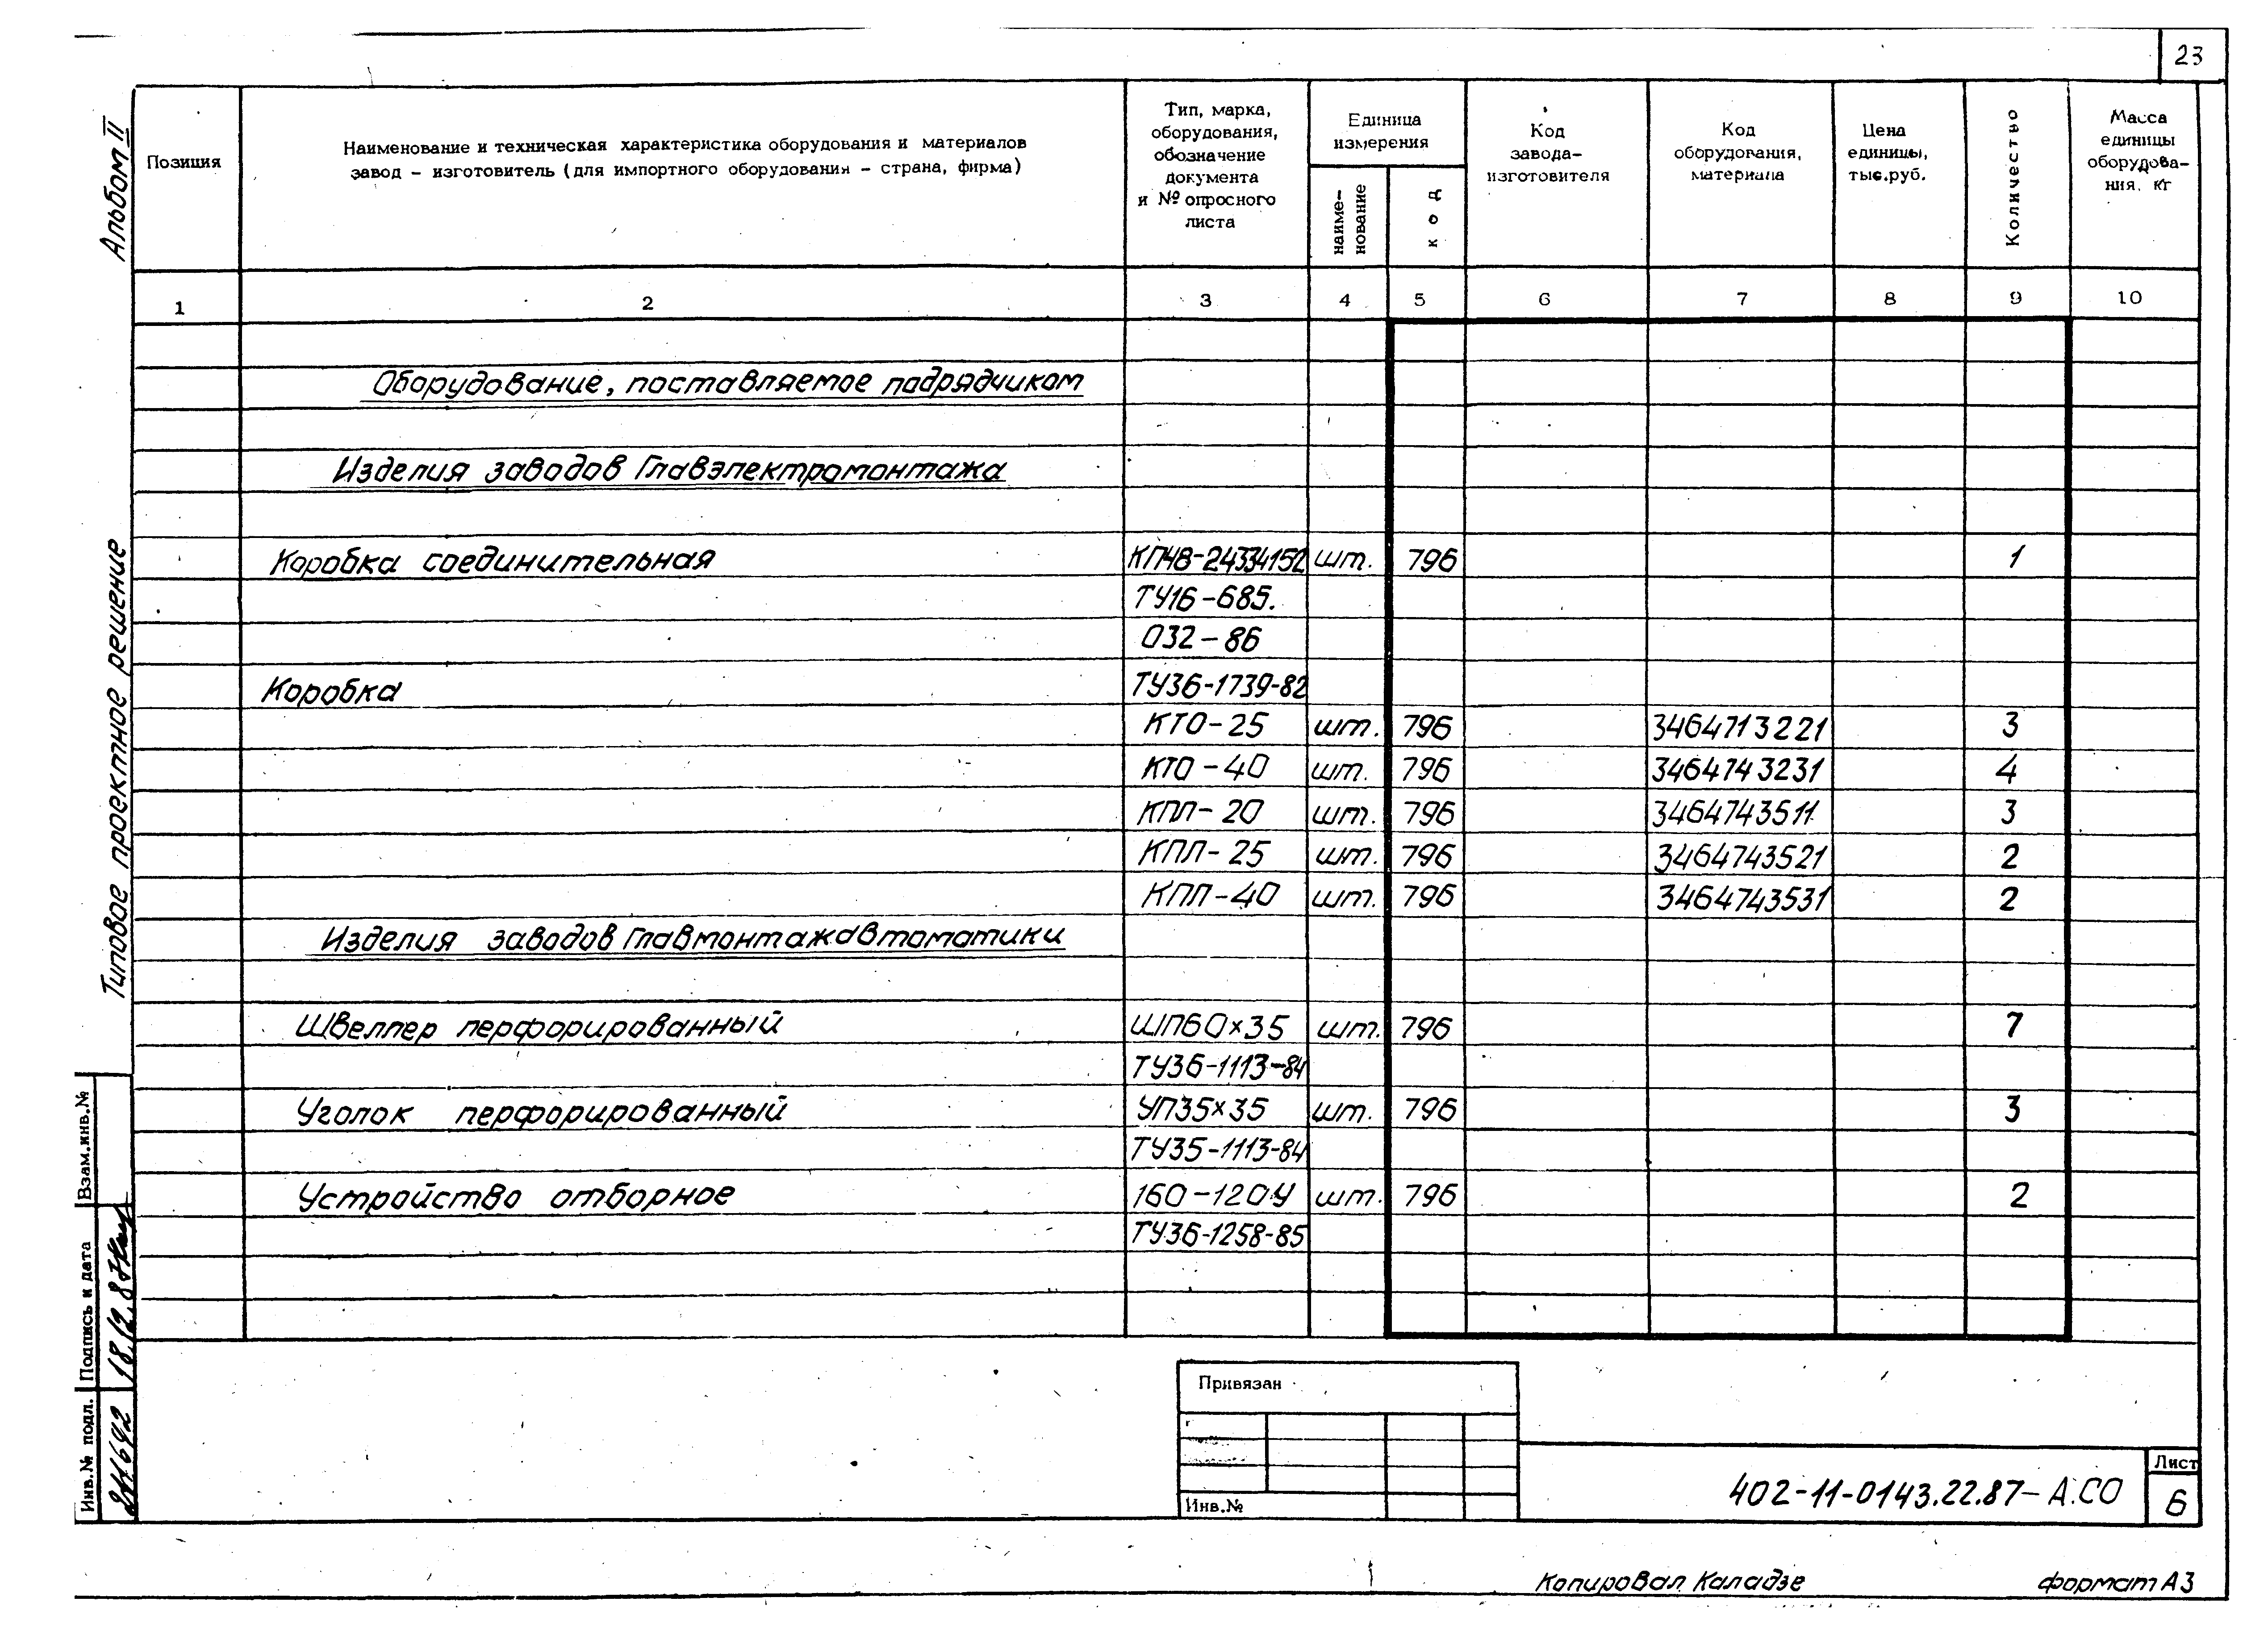 23
Альбом II
Типовое проектное решение
Позиция
Наименование и техническая характеристика оборудования и материалов
завод – изготовитель (для импортного оборудования – страна, фирма)
Тип, марка,
оборудования,
обозначение
документа
и № опросного
листа
Единица
измерения
наиме-
нование
код
Код
завода-
изготовителя
Код
оборудования,
материала
Цена
единицы,
тыс.руб.
Количество
Масса
единицы
оборудова-
ния, кг
1 2 3 4 5 6 7 8 9 10
Оборудование, поставляемое подрядчиком
Изделия заводов Главэлектромонтажа
Коробка соединительная КП48-24334152 шт. 796 1
ТУ16-685.
032-86
Коробка ТУ36-1739-82
КТО-25 шт. 796 3464713221 3
КТО-40 шт. 796 3464743231 4
КПЛ-20 шт. 796 3464743511 3
КПЛ-25 шт. 796 3464743521 2
КПЛ-40 шт. 796 3464743531 2
Изделия заводов Главмонтажавтоматики
Швеллер перфорированный ШП60х35 шт. 796 7
ТУ36-1113-84
Уголок перфорированный УП35х35 шт. 796 3
ТУ35-1113-84
Устройство отборное 160-120У шт. 796 2
ТУ36-1258-85
Взам.инв.№
Подпись и дата
18.12.87
Инв.№ подл.
Привязан
Инв.№
402-11-0143.22.87-А.СО
Лист
6
Копировал Каладзе
формат А3